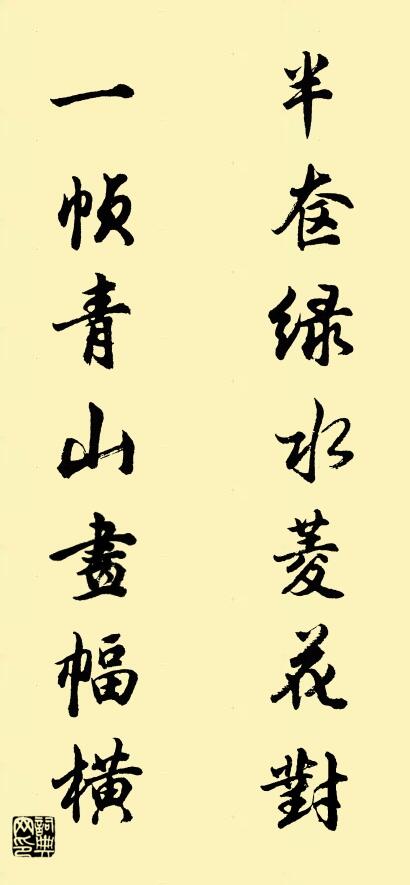 半奁绿水菱花對
一帧青山畫幅横
詞典网印